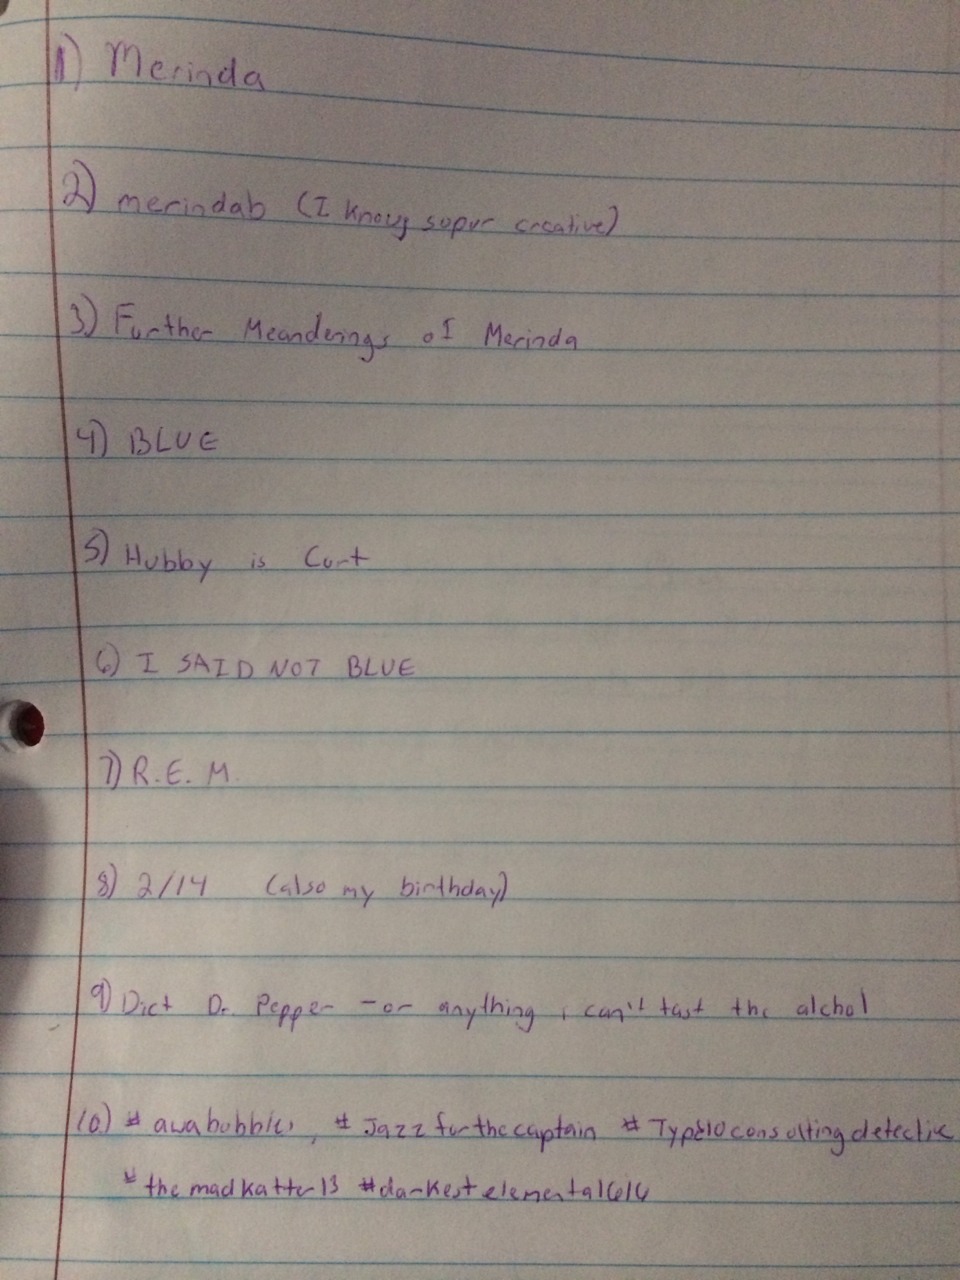 1) Merinda
2) merindab (I know, super creative)
3) Further Meanderings of Merinda
4) BLUE
5) Hubby is Curt
6) I SAID NOT BLUE
7) R.E.M.
8) 2/14 (also my birthday)
9) Diet Dr. Pepper - or anything i can't tast the alchol
10) # awabubbles, # Jazzforthecaptain # Type10consultingdetective
# themadkatter13 #darkestelemental616